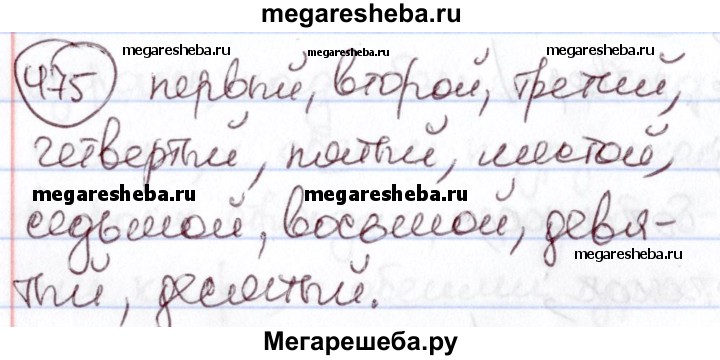 megaresheba.ru
475 первый, второй, третий,
megaresheba.ru megaresheba.ru megaresheba.ru
четвертый, пятый, шестой,
megaresheba.ru megaresheba.ru
седьмой, восьмой, девя-
megaresheba.ru megaresheba.ru
тый, десятый.
Мегарешеба.ру